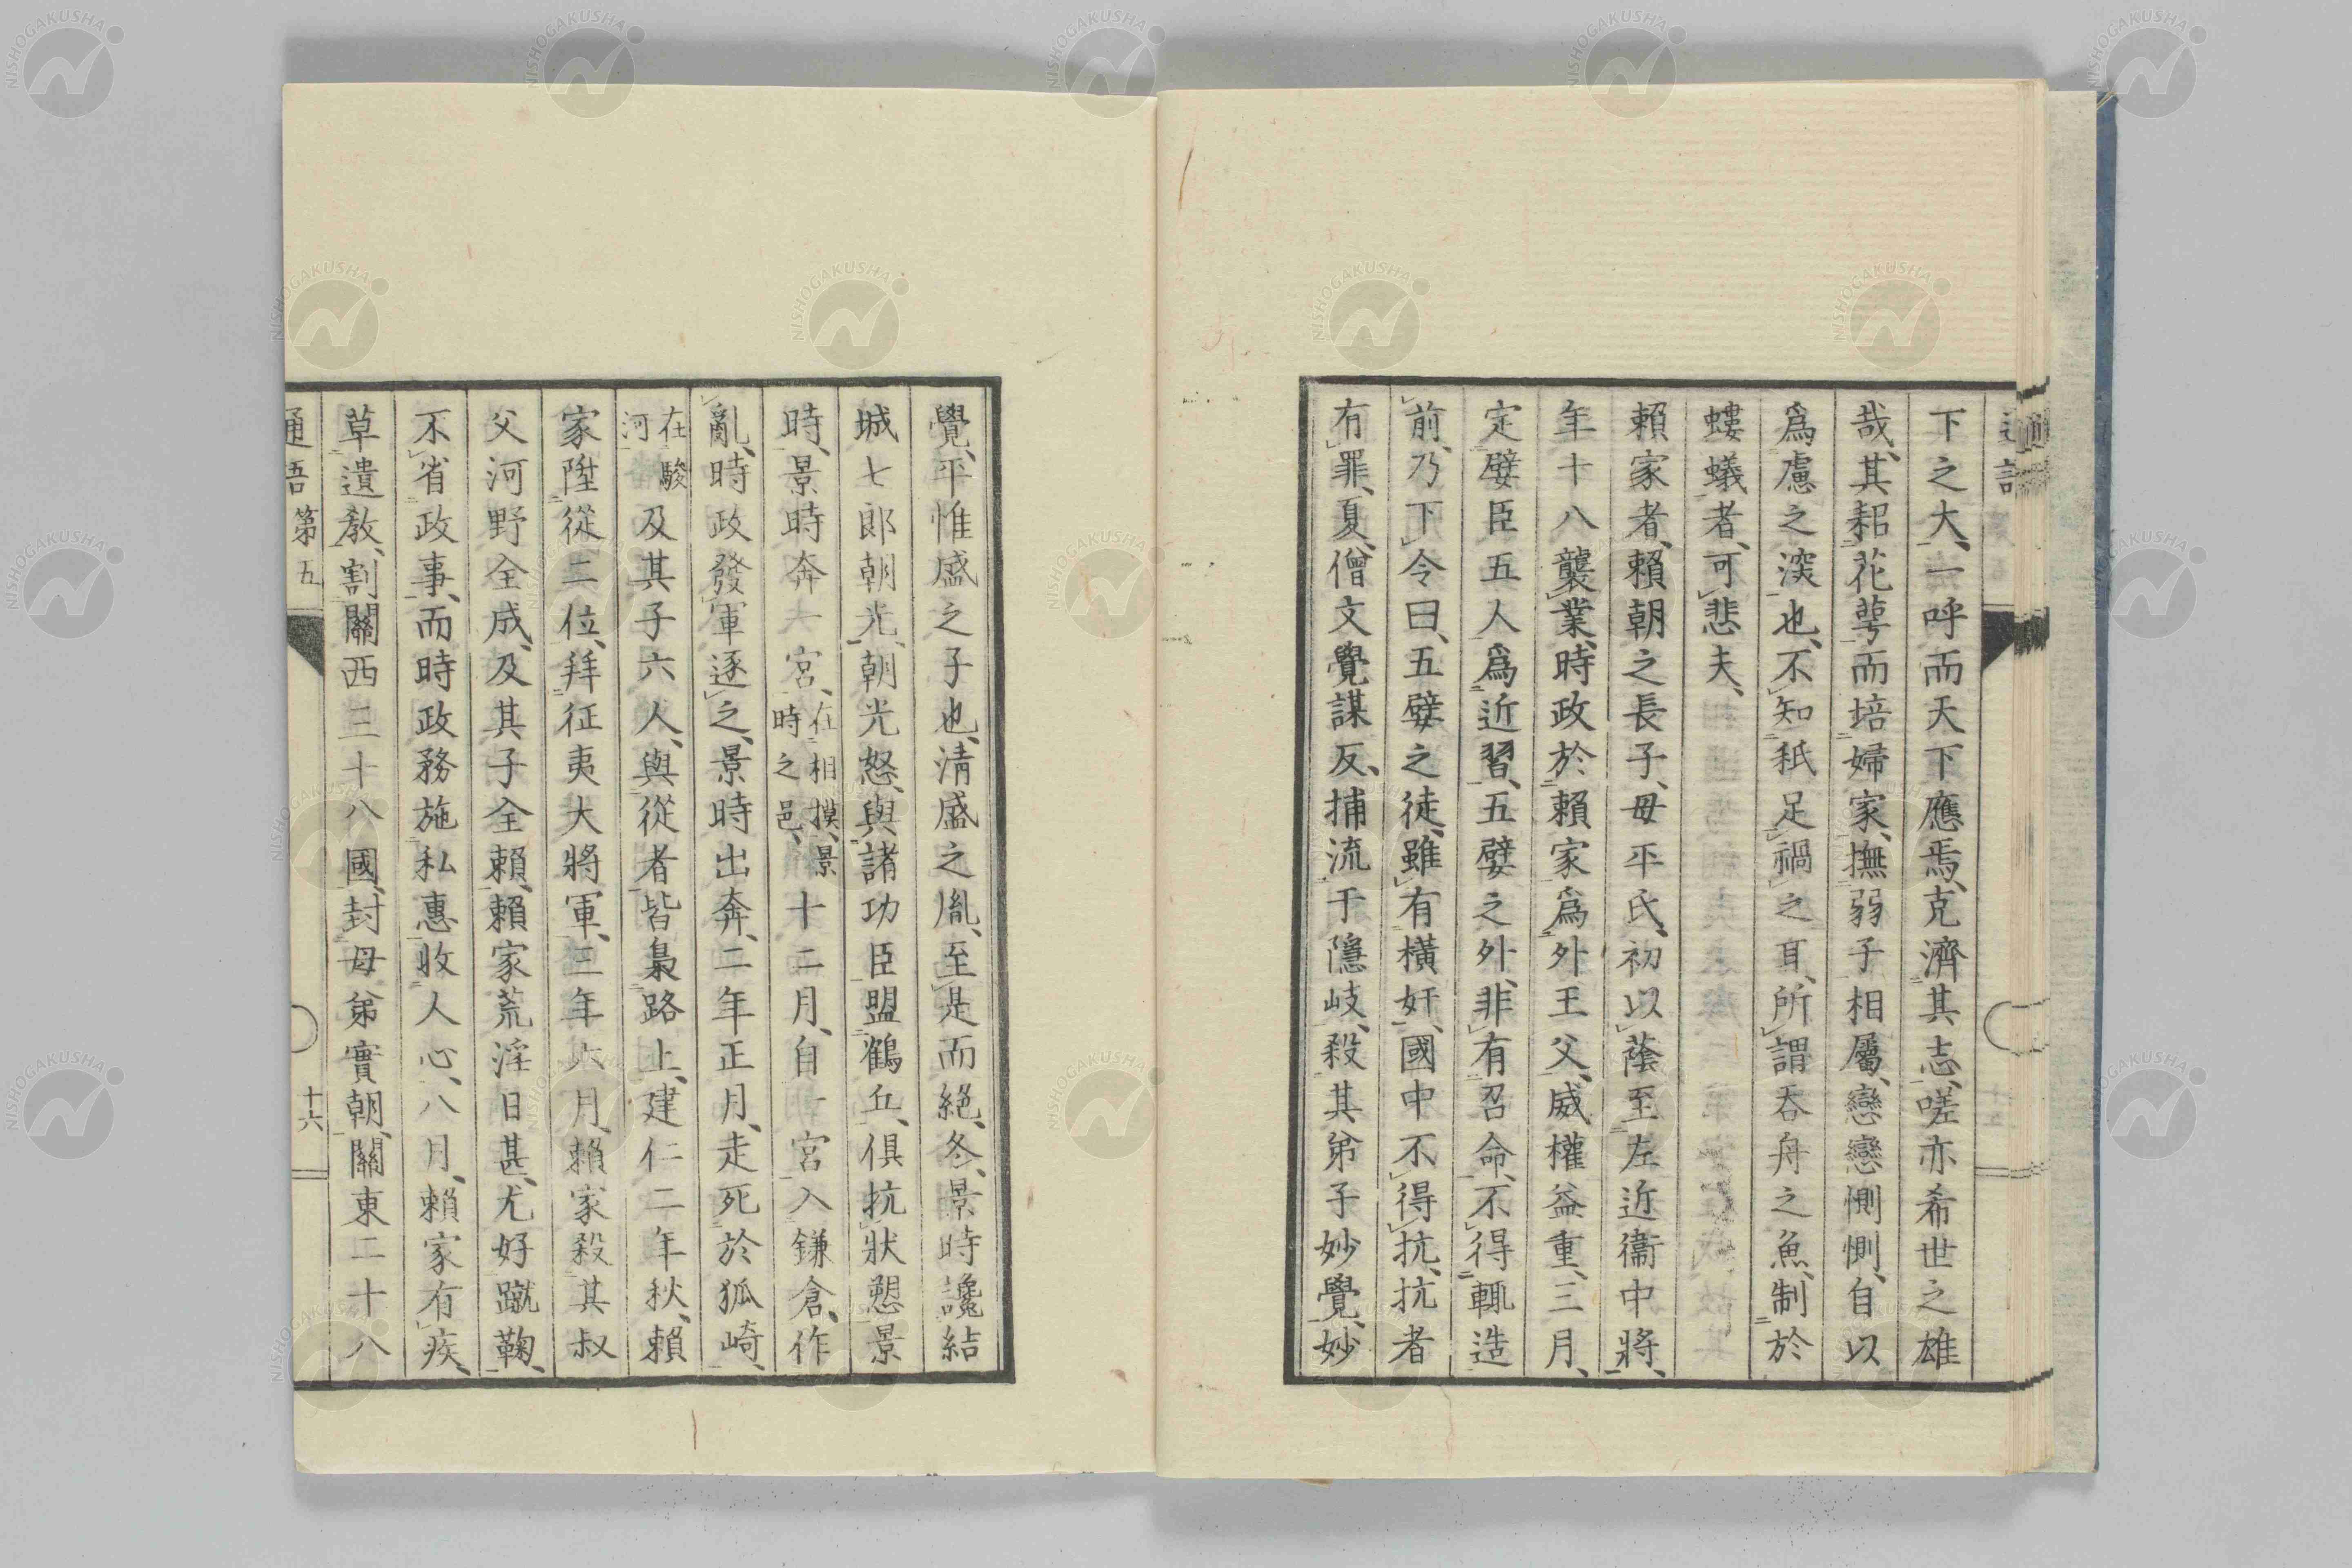 下之大、一呼而天下應焉、克濟其志、嗟亦希世之雄
哉、其耜花萼而培婦家、撫弱子相屬、戀戀惻惻、自以
爲慮之深也、不知秖足禍之耳、所謂吞舟之魚、制於
螻蟻者、可悲夫、
賴家者、賴朝之長子、母平氏、初以蔭至左近衞中將、
年十八襲業、時政於賴家爲外王父、威權益重、三月、
定嬖臣五人爲近習、五嬖之外、非有召命、不得輒造
前、乃下令曰、五嬖之徒、雖有橫奸、國中不得抗、抗者
有罪、夏、僧文覺謀反、捕流于隱岐、殺其弟子妙覺、妙
覺、平惟盛之子也、淸盛之胤、至是而絕、冬、景時讒結
城七郎朝光、朝光怒、與諸功臣盟鶴丘、俱抗狀愬景
時、景時奔一宮、在相摸、景時之邑、十二月、自一宮入鎌倉、作
亂、時政發軍逐之、景時出奔、二年正月、走死於狐崎、
在駿河及其子六人、與從者皆梟路上、建仁二年秋、賴
家陞從二位、拜征夷大將軍、三年六月、賴家殺其叔
父河野全成、及其子全賴、賴家荒淫日甚、尤好蹴鞠、
不省政事、而時政務施私惠、收人心、八月、賴家有疾、
草遺敎、割關西三十八國、封母弟實朝、關東二十八
通語 第五 十六